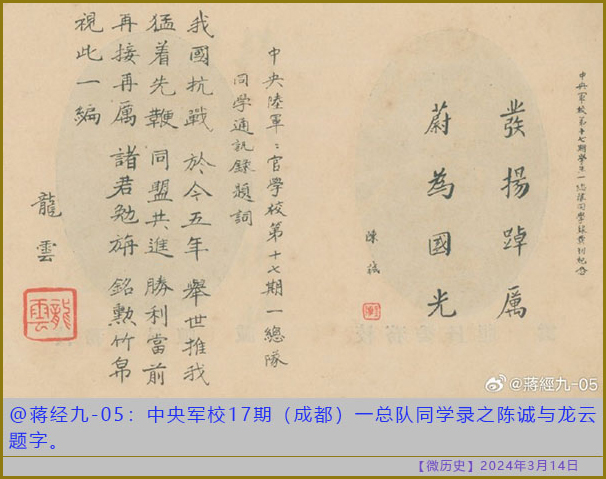 中央軍校第十七期學生一總隊同學錄發刊紀念
發揚踔厲
蔚為國光
陳誠
中央陸軍〻官學校第十七期一總隊
同學通訊錄題詞
我國抗戰 於今五年 舉世推我
猛着先鞭 同盟共進 勝利當前
再接再厲 諸君勉旃 銘勳竹帛
視此一編
龍雲
龍雲
@蔣經九-05
@蒋经九-05：中央军校17期（成都）一总队同学录之陈诚与龙云
题字。
【微历史】2024年3月14日